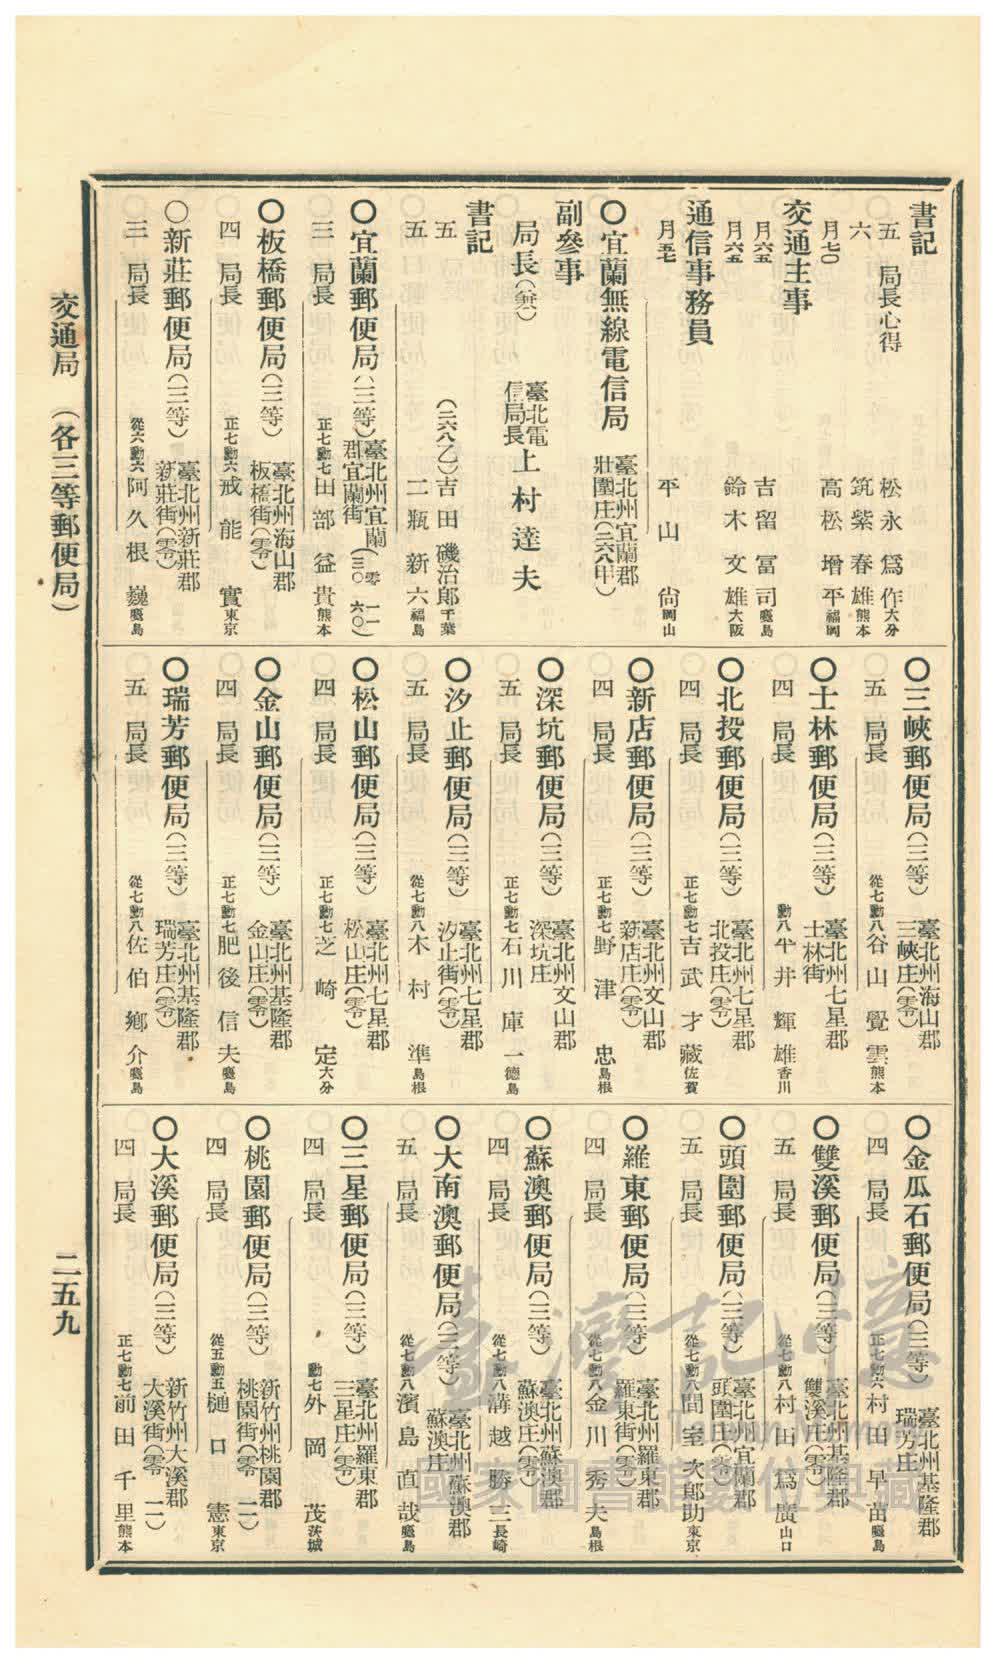 書記
五　局長心得　松永爲作　大分
六　筑紫春雄　熊本
月七〇　高松增平　福岡
交通主事
月六五　吉留冨司　麑島
月六五　鈴木文雄　大阪
通信事務員
月五七　平山尙　岡山
〇宜蘭無線電信局　臺北州宜蘭郡壯圍庄(二六八甲)
副參事
局長(兼)　臺北電信局長　上村達夫
書記
五　(二六八乙)吉田磯治郞　千葉
五　二瓶新六　福島
〇宜蘭郵便局(三等)　臺北州宜蘭郡宜蘭街(零一一三〇六〇)
三　局長　正七勳七　田部益貴　熊本
〇板橋郵便局(三等)　臺北州海山郡板橋街(零)
四　局長　正七勳六　戒能實　東京
〇新莊郵便局(三等)　臺北州新莊郡新莊街(零)
三　局長　從六勳六　阿久根巍　麑島
〇三峽郵便局(三等)　臺北州海山郡三峽庄(零)
五　局長　從七勳八　谷山覺雲　熊本
〇士林郵便局(三等)　臺北州七星郡士林街
四　局長　勳八　平井輝雄　香川
〇北投郵便局(三等)　臺北州七星郡北投庄(零)
四　局長　正七勳七　吉武才藏　佐賀
〇新店郵便局(三等)　臺北州文山郡新店庄(零)
四　局長　正七勳七　野津忠　島根
〇深坑郵便局(三等)　臺北州文山郡深坑庄
五　局長　正七勳七　石川庫一　德島
〇汐止郵便局(三等)　臺北州七星郡汐止街(零)
五　局長　從七勳八　木村準　島根
〇松山郵便局(三等)　臺北州七星郡松山庄(零)
四　局長　正七勳七　芝崎定　大分
〇金山郵便局(三等)　臺北州基隆郡金山庄(零)
四　局長　正七勳七　肥後信夫　麑島
〇瑞芳郵便局(三等)　臺北州基隆郡瑞芳庄(零)
五　局長　從七勳八　佐伯鄕介　麑島
〇金瓜石郵便局(三等)　臺北州基隆郡瑞芳庄
四　局長　正七勳六　村田早苗　麑島
〇雙溪郵便局(三等)　臺北州基隆郡雙溪庄(零)
五　局長　從七勳八　村田爲廣　山口
〇頭圍郵便局(三等)　臺北州宜蘭郡頭圍庄(零)
五　局長　從七勳八　間室次郞助　東京
〇羅東郵便局(三等)　臺北州羅東郡羅東街(零)
四　局長　從七勳八　金川秀夫　島根
〇蘇澳郵便局(三等)　臺北州蘇澳郡蘇澳庄(零)
四　局長　從七勳八　溝越勝三　長崎
〇大南澳郵便局(三等)　臺北州蘇澳郡蘇澳庄
五　局長　從七勳八　濱島直哉　麑島
〇三星郵便局(三等)　臺北州羅東郡三星庄(零)
四　局長　勳七　外岡茂　茨城
〇桃園郵便局(三等)　新竹州桃園郡桃園街(零一一)
四　局長　從五勳五　樋口憲　東京
〇大溪郵便局(三等)　新竹州大溪郡大溪街(零一一)
四　局長　正七勳七　前田千里　熊本
交通局　(各三等郵便局)
二五九
臺灣記憶
Taiwan Memory
國家圖書館數位典藏